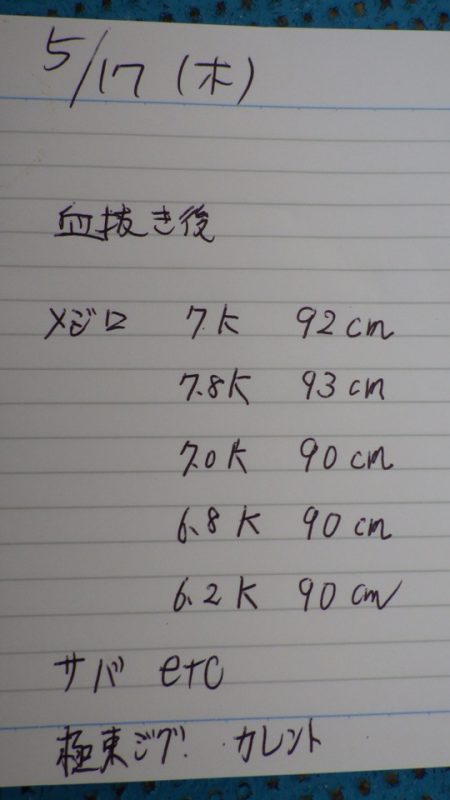 5/17 (木)
血抜き後
メジロ 7.K 92cm
7.8K 93cm
7.0K 90cm
6.8K 90cm
6.2K 90cm
サバ etc
極東ジグ. カレント